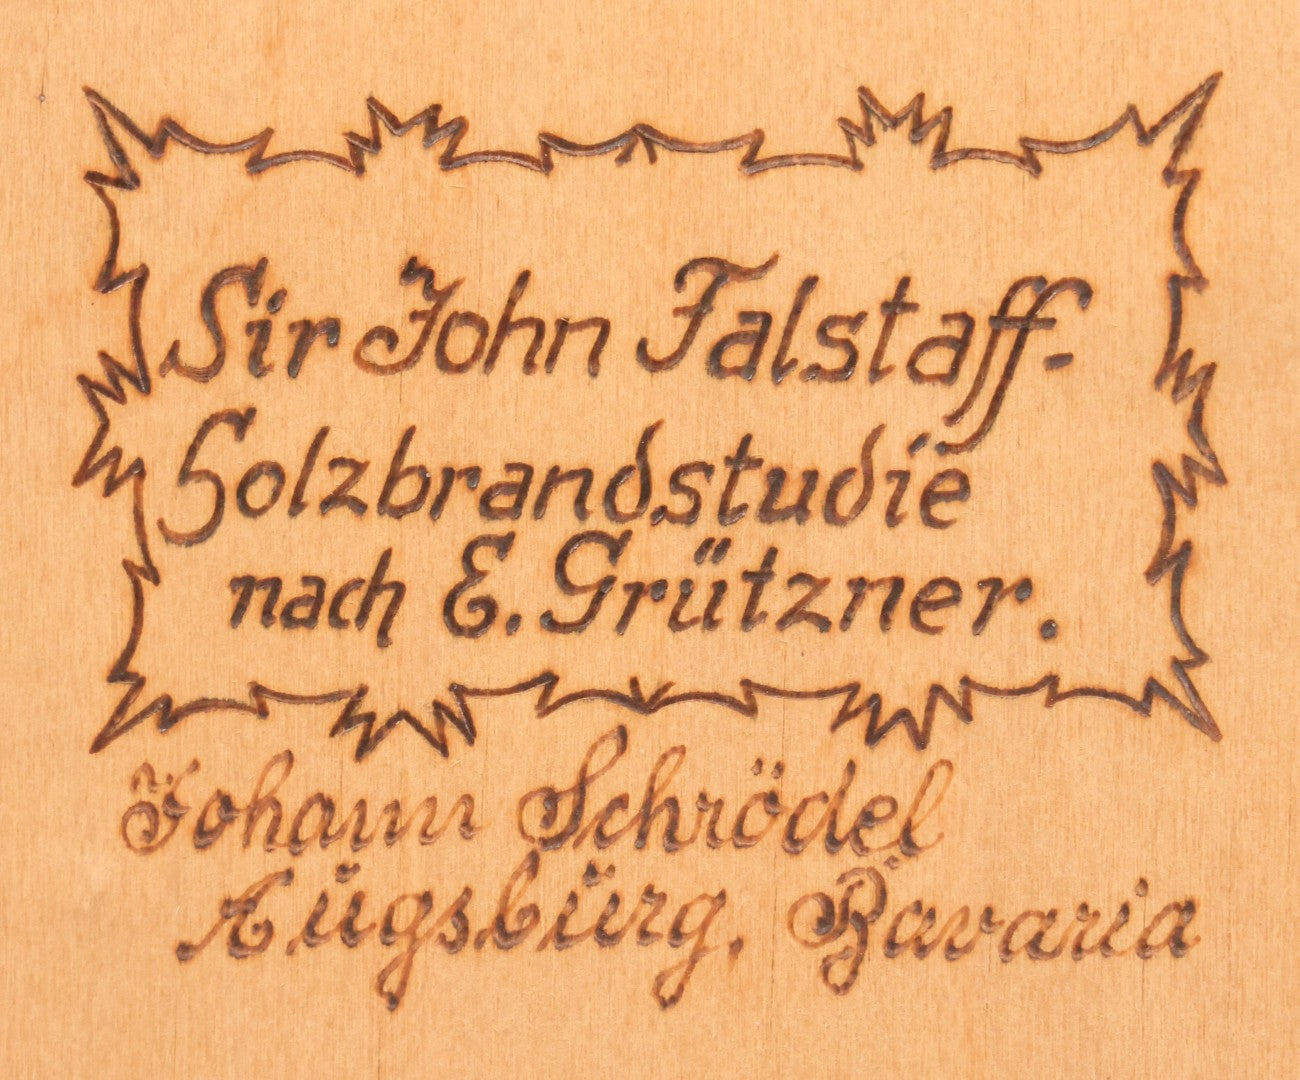 Sir John Falstaff-
Holzbrandstudie
nach E. Grützner.
Johann Schrödel
Augsburg, Bavaria